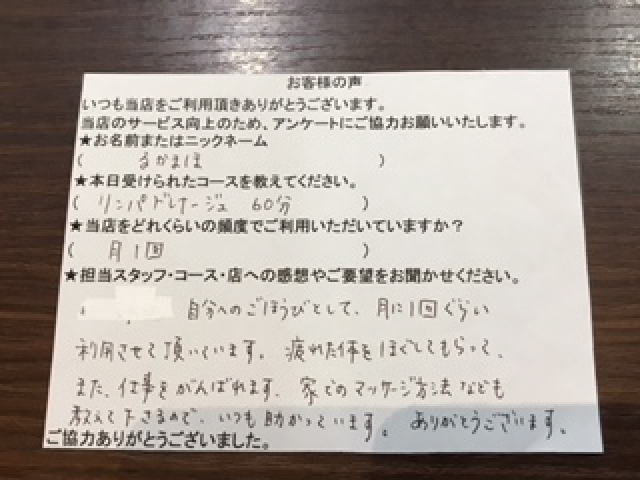 お客様の声
いつも当店をご利用頂きありがとうございます。
当店のサービス向上のため、アンケートにご協力お願いいたします。
★お名前またはニックネーム
( るかまほ )
★本日受けられたコースを教えてください。
( リンパドレナージュ 60分 )
★当店をどれくらいの頻度でご利用いただいていますか？
( 月1回 )
★担当スタッフ・コース・店への感想やご要望をお聞かせください。
自分へのごほうびとして、月に1回ぐらい
利用させて頂いています。疲れた体をほぐしてもらって、
また、仕事をがんばれます。家でのマッサージ方法なども
教えて下さるので、いつも助かっています。ありがとうございます。
ご協力ありがとうございました。